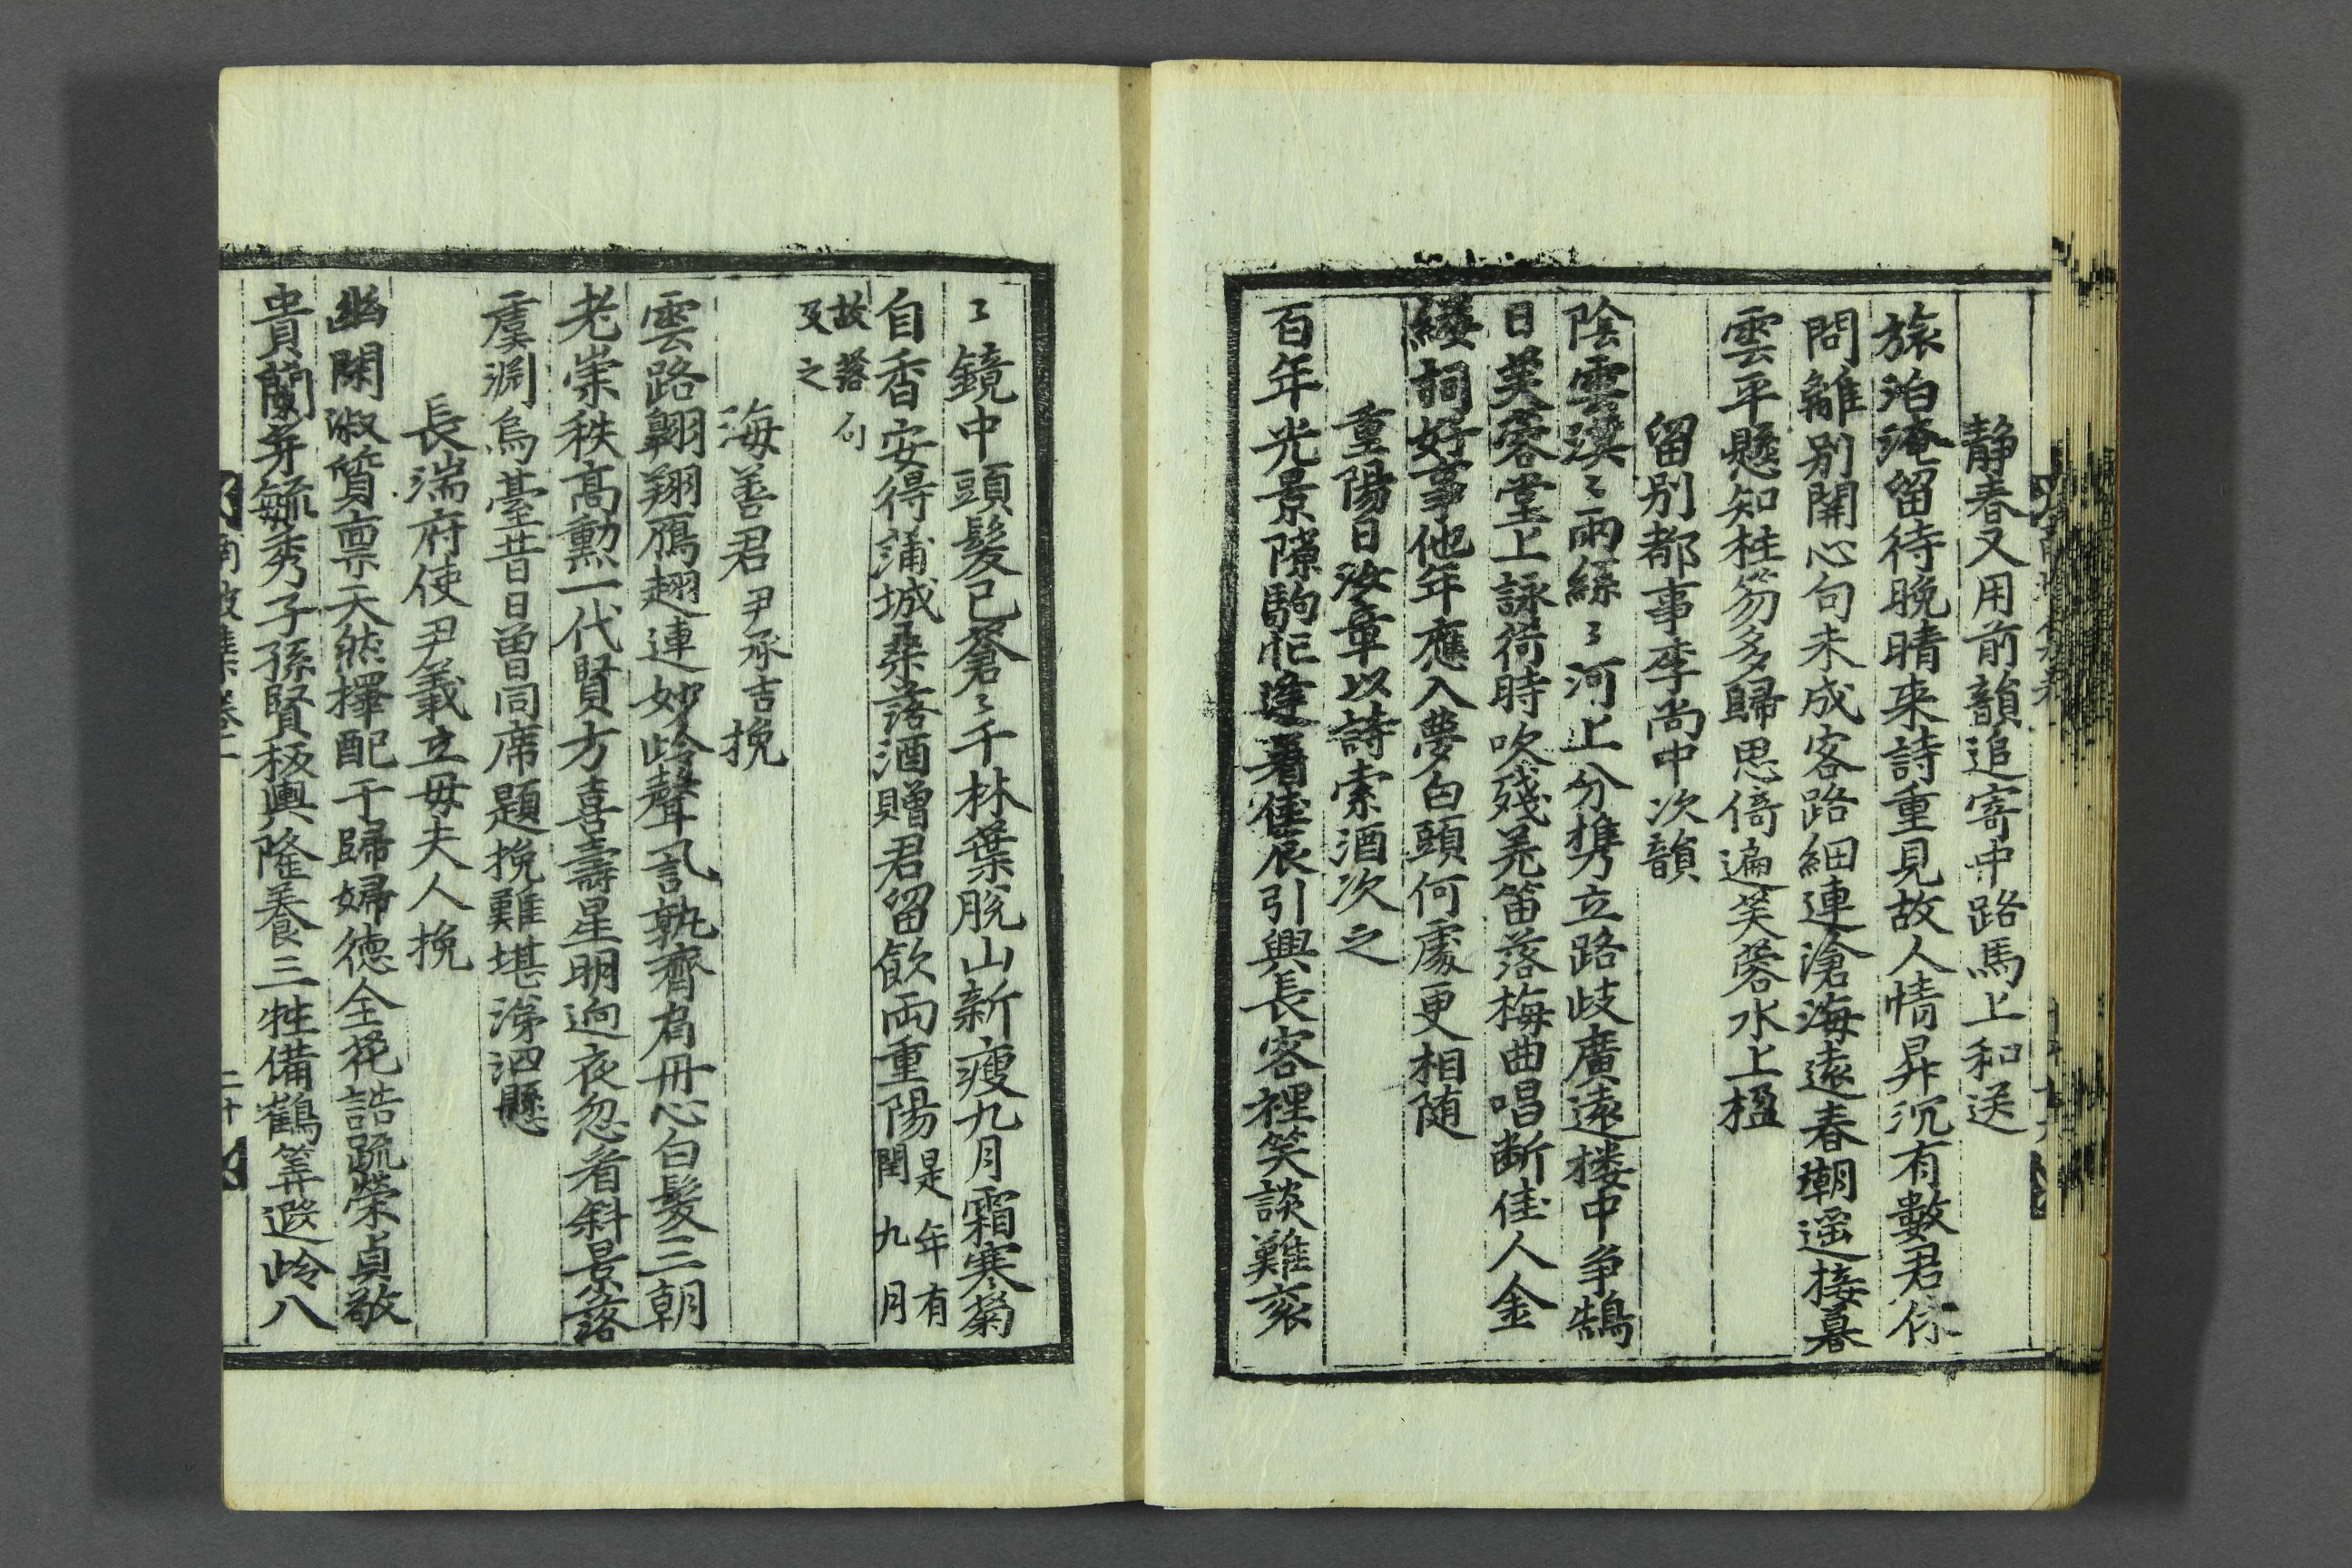 静春又用前韻追寄中路馬上和送
旅泊淹留待晩晴来詩重見故人情昇沉有數君休
問離别開心句未成客路細連滄海遠春潮遥接暮
雲平懸知柱笏多歸思倚遍芙蓉水上楹
留别都事李尚中次韻
陰雲漠〻雨絲〻河上分携立路歧廣遠楼中争鵠
日芙蓉堂上詠荷時吹殘羌笛落梅曲唱断佳人金
縷詞好事他年應入夢白頭何處更相随
重陽日汝章以詩索酒次之
百年光景隙駒忙逢着佳辰引興長客裡笑談難衮
〻鏡中頭髪已蒼〻千林葉脫山新瘦九月霜寒菊
自香安得蒲城桑落酒贈君留飲両重陽是年有閏九月
故落句及之
海善君尹承吉挽
雲路翺翔鴈趐連妙岭聲㲀孰齊肩丹心白髪三朝
老崇秩髙勳一代賢方喜壽星明逈夜忽着斜景落
虞淵烏䑓昔日曽同席題挽難堪涕泗懸
長湍府使尹義立母夫人挽
幽閑淑質禀天然擇配于歸婦徳全花誥疏榮貞敬
貴蘭芽毓秀子孫賢板輿隆養三牲備鶴筭遐岭八
南坡集卷二
二十